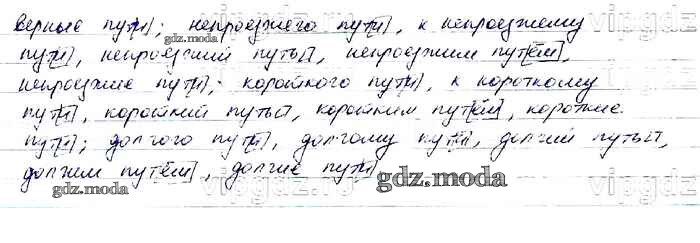 верные пут[и]; непроезжего пут[и], к непроезжему
пут[и], непроезжий путь[], непроезжим пут[ём],
непроезжие пут[и]; короткого пут[и], к короткому
пут[и], короткий путь[], коротким пут[ём], короткие
пут[и]; долгого пут[и], долгому пут[и], долгий путь[],
долгим пут[ём], долгие пут[и]
gdz.moda
gdz.moda
gdz.moda
gdz.moda